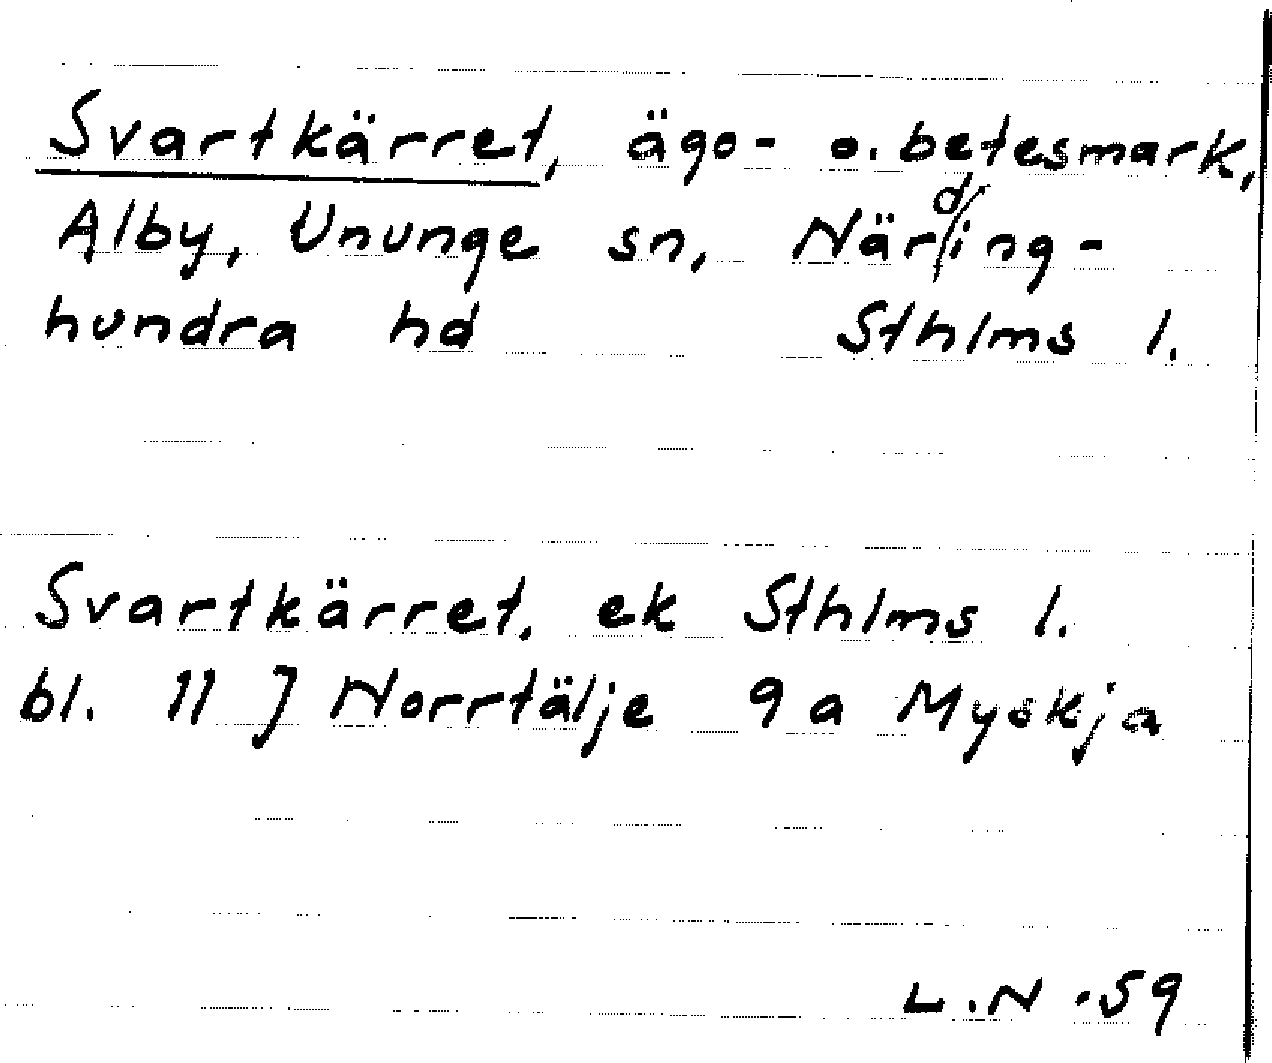 Svartkärret, ägo- o. betesmark,
Alby, Ununge sn, Närding-
hundra hd Sthlms l.
Svartkärret, ek Sthlms l.
bl. 11 J Norrtälje 9 a Myskja
L.N -59